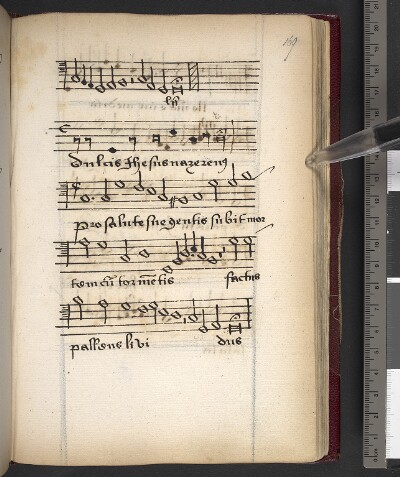 dulcis Jhesus nazerenus
pro salute sue gentis subit mor
tem cum tormentis factus
pallens livi dus